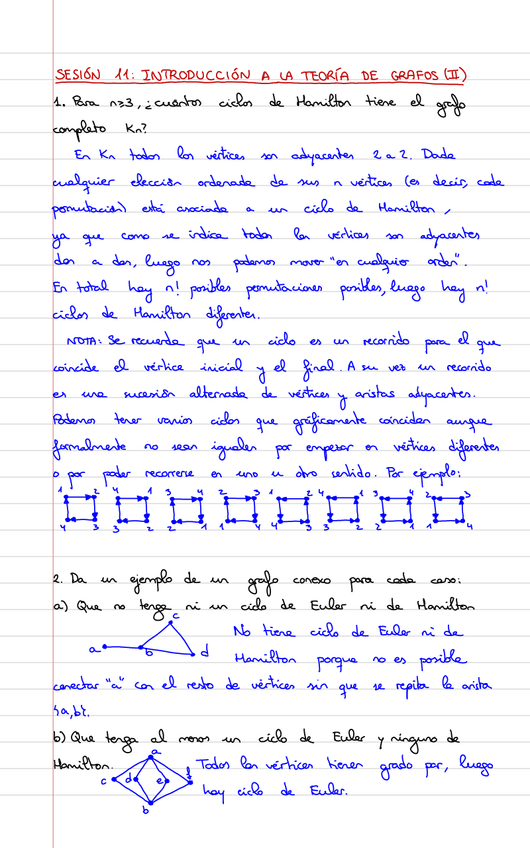 SESIÓN 11: INTRODUCCIÓN A LA TEORÍA DE GRAFOS (II)
1. Para n≥3, ¿cuántos ciclos de Hamilton tiene el grafo
completo Kn?
En Kn todos los vértices son adyacentes 2 a 2. Dada
cualquier elección ordenada de sus n vértices (es decir, cada
permutación) está asociada a un ciclo de Hamilton,
ya que como se indica todos los vértices son adyacentes
dos a dos, luego nos podemos mover "en cualquier orden".
En total hay n! posibles permutaciones posibles, luego hay n!
ciclos de Hamilton diferentes.
NOTA: Se recuerda que un ciclo es un recorrido para el que
coincide el vértice inicial y el final. A su vez un recorrido
es una sucesión alternada de vértices y aristas adyacentes.
Podemos tener varios ciclos que gráficamente coincidan aunque
formalmente no sean iguales por empezar en vértices diferentes
o por poder recorrerse en uno u otro sentido. Por ejemplo:
1 2 4 1 3 4 2 3 1 2 4 1 3 4 2 3
4 3 3 2 2 1 1 4 4 3 3 2 2 1 1 4
2. Da un ejemplo de un grafo conexo para cada caso:
a) Que no tenga ni un ciclo de Euler ni de Hamilton
c
No tiene ciclo de Euler ni de
a b d
Hamilton porque no es posible
conectar "a" con el resto de vértices sin que se repita la arista
{a,b}.
b) Que tenga al menos un ciclo de Euler y ninguno de
Hamilton.
a
Todos los vértices tienen grado par, luego
c d e f
hay ciclo de Euler.
b